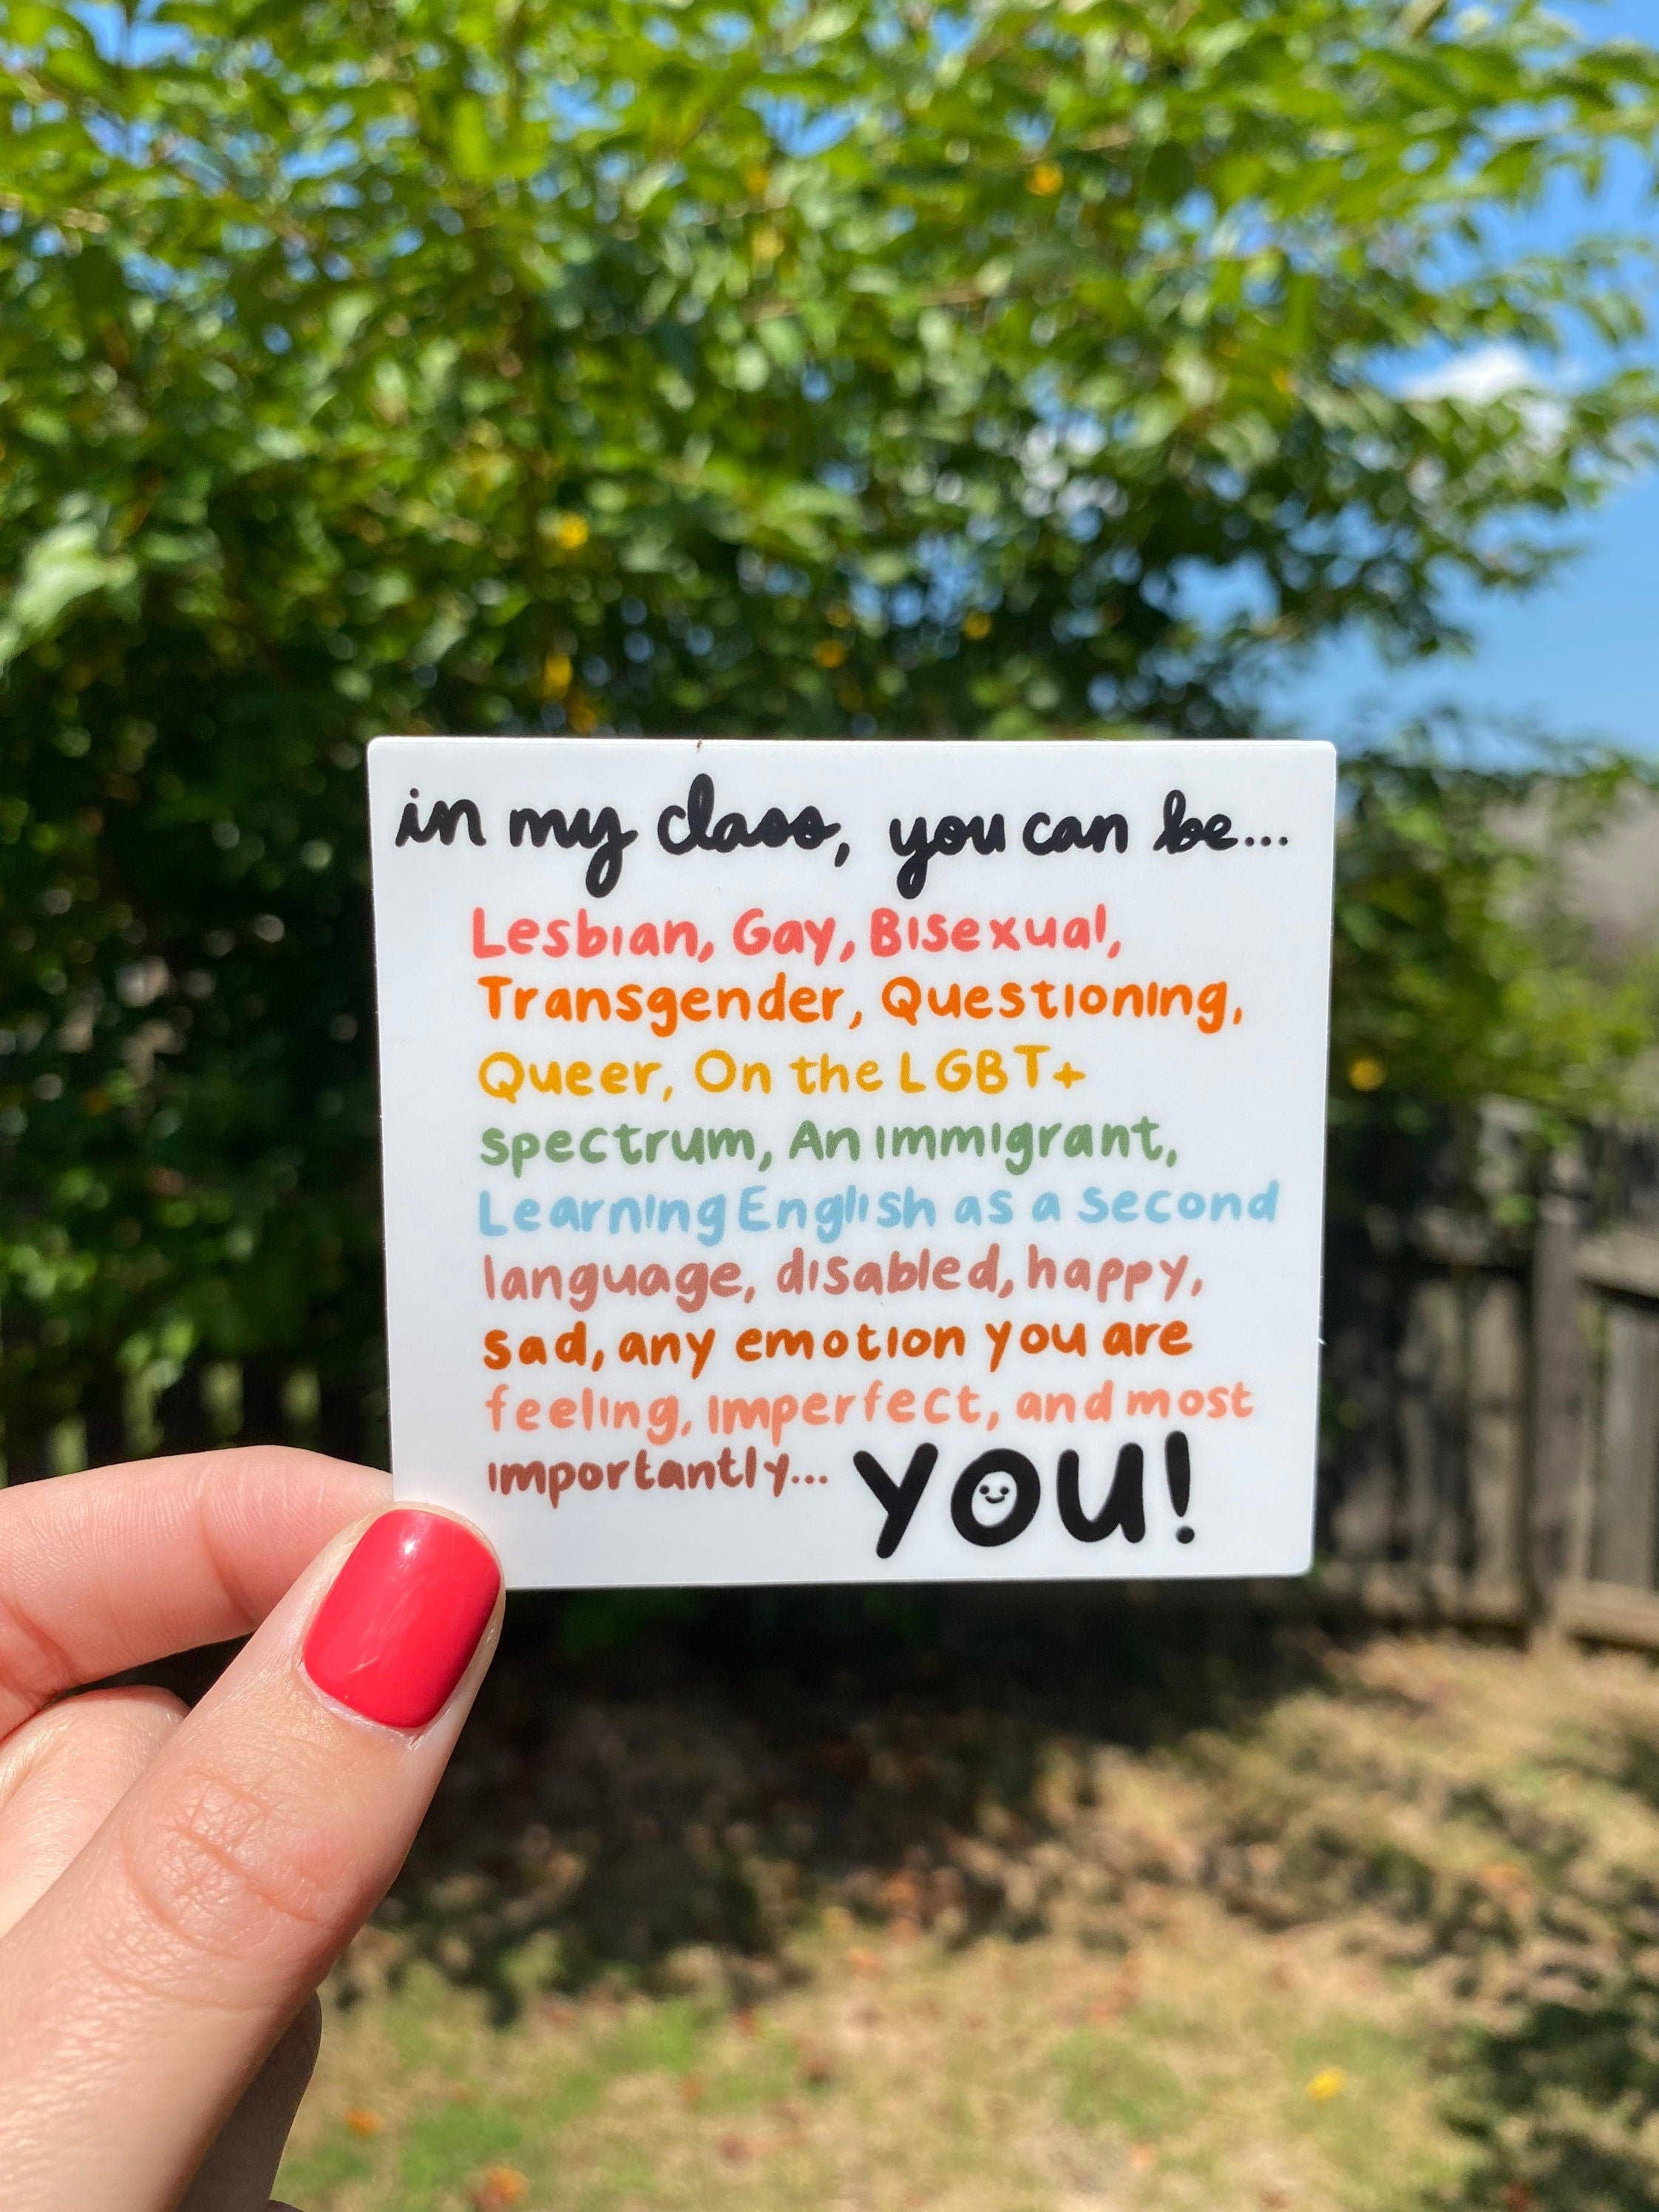 in my class, you can be...
Lesbian, Gay, Bisexual,
Transgender, Questioning,
Queer, On the LGBT+
spectrum, An immigrant,
Learning English as a second
language, disabled, happy,
sad, any emotion you are
feeling, imperfect, and most
importantly... YOU!